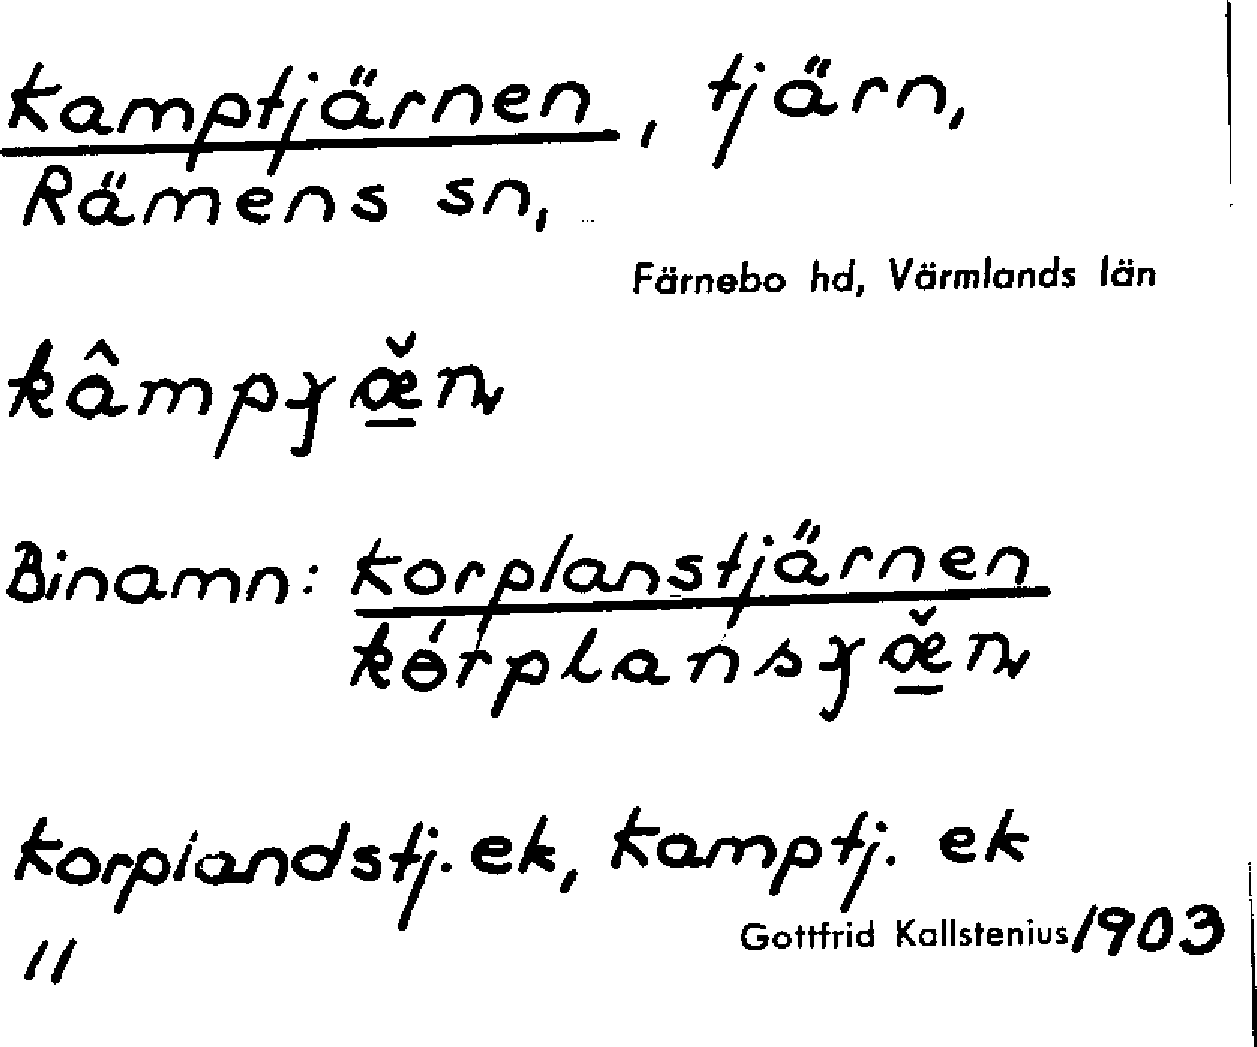 Kamptjärnen, tjärn,
Rämens sn,
Färnebo hd, Värmlands län
Binamn: Korplanstjärnen
Korplandstj. ek, Kamptj. ek
Gottfrid Kallstenius 1903
"